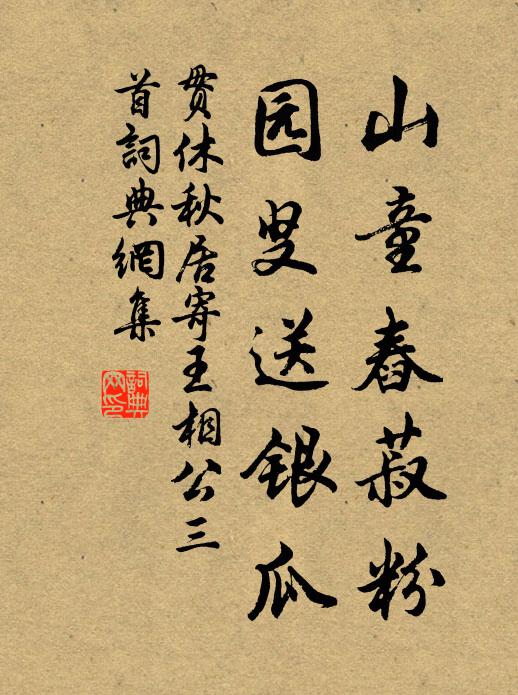 山童舂菽粉
园叟送银瓜
贯休秋居寄王相公三
首詞典網集
詞典網印